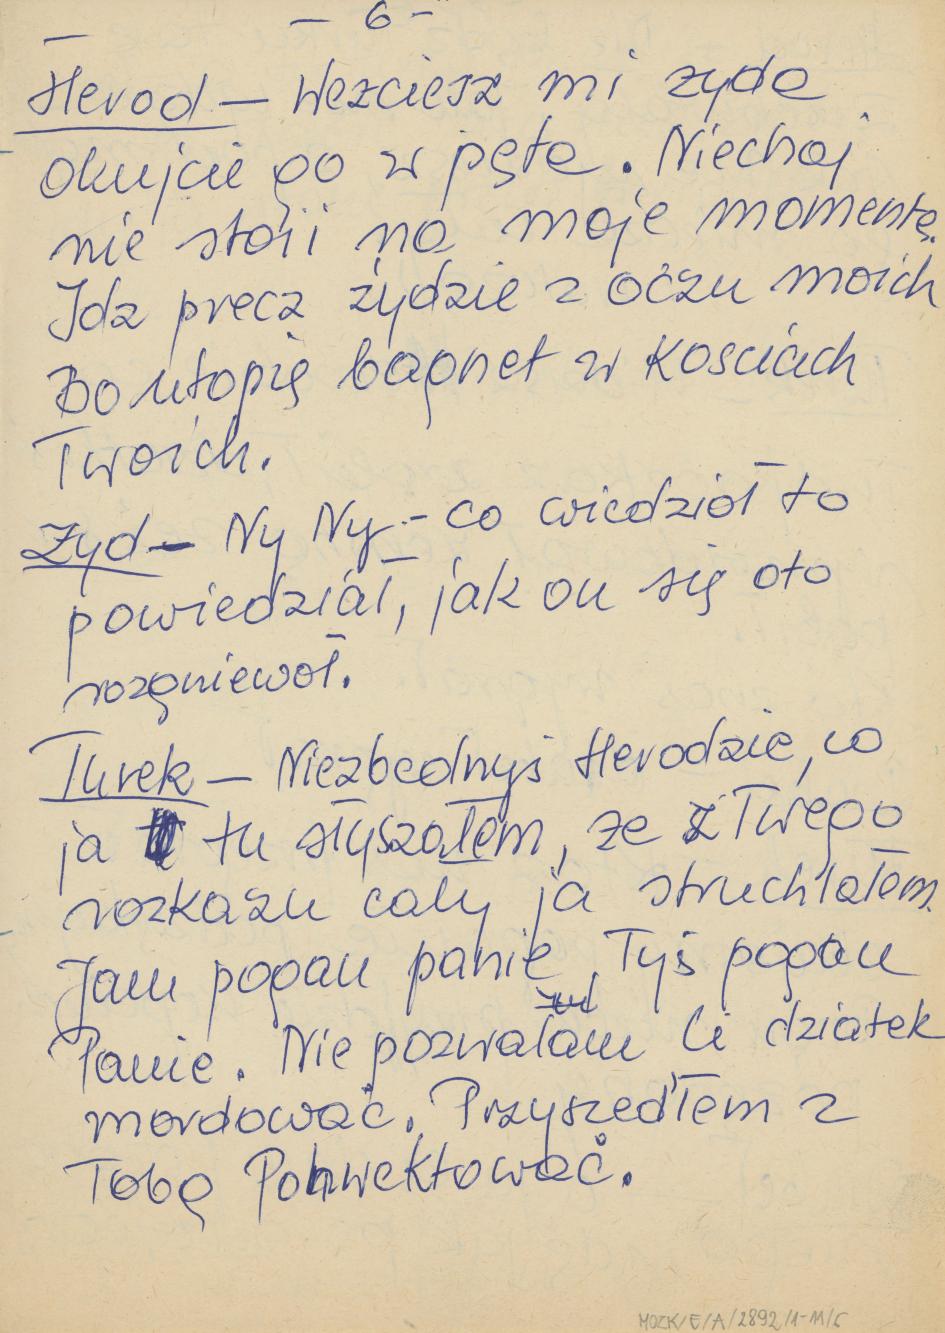 - 6 -
Herod – Wezciesz mi zyda
okujcie go w pęta. Niechaj
nie stoii na moje momentę.
Idz precz żydzie z oczu moich
Bo utopię bagnet w Kosciach
Twoich.
Zyd – Ny Ny – co wiedział to
powiedział, jak on się oto
rozgniewał.
Turek – Niezbednyś Herodzie, co
ja tu słyszałem, ze z Twego
rozkazu cały ja struchlałem.
Jam pogan panie, Tyś pogan
Panie. Nie pozwalam Ci dziatek
mordować. Przyszedłem z
Tobą Pohwektować.
MOZK/E/A/2892/1-M/6